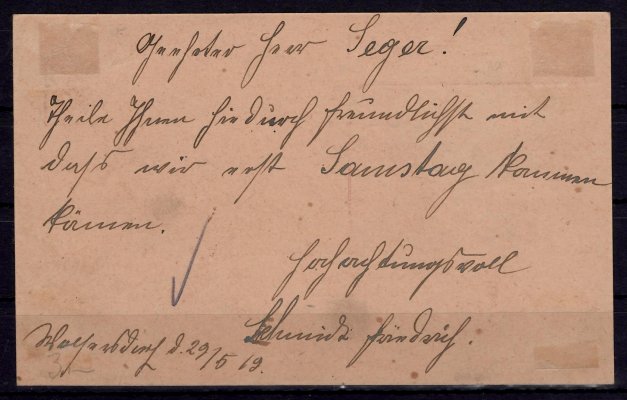 Geehrter Herr Seger!
Theile Ihnen hiedurch freundlichst mit
dass wir erst Samstag kommen
können.
Hochachtungsvoll
Schmidt Friedrich.
d. 29/5 19.